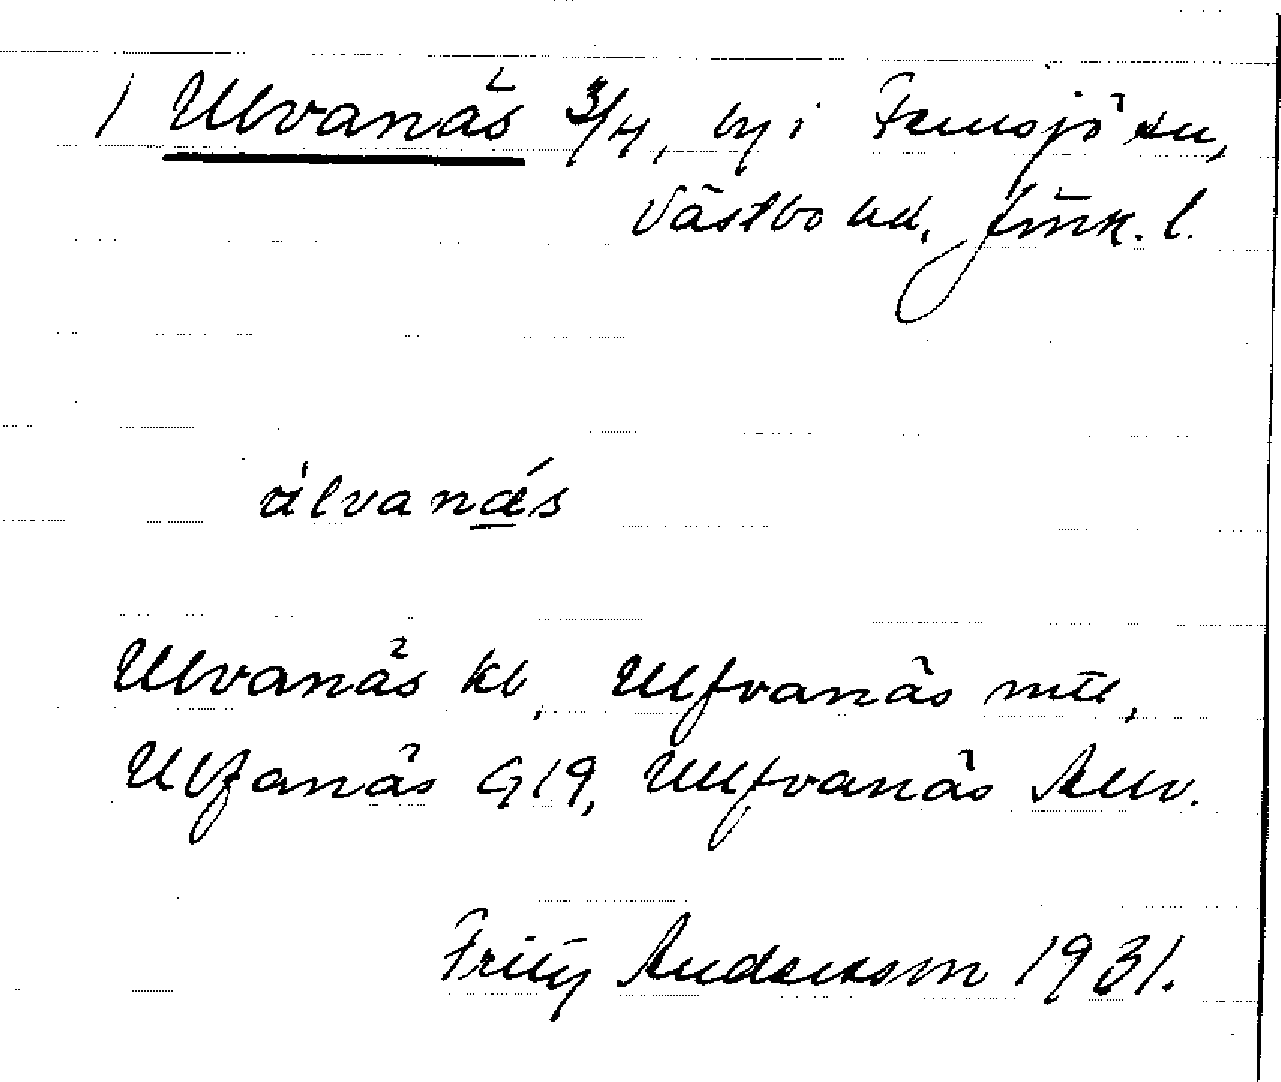 / Ulvanäs 3/4, by i Femsjö sn,
Västbo hd, Jönk. l.
úlvanǽs
Ulvanäs kb, Ulfvanäs mtl,
Ulfanäs G19, Ullfvanäs Allv.
Fritz Andersson 1931.